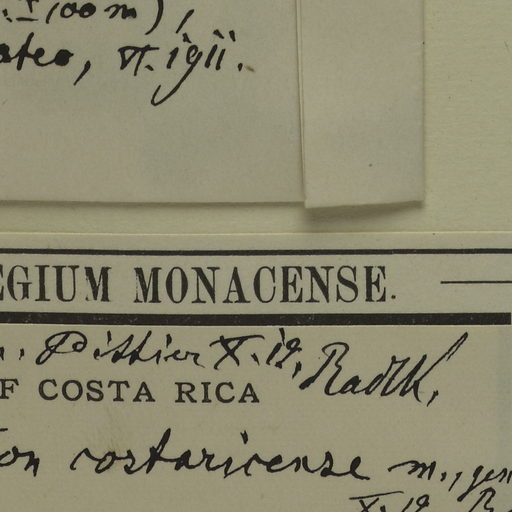 .±100m),
ateo, VI.1911.
EGIUM MONACENSE.
. Pittier X.19. Radlk.
F COSTA RICA
on costaricense m., gen
X.19. R